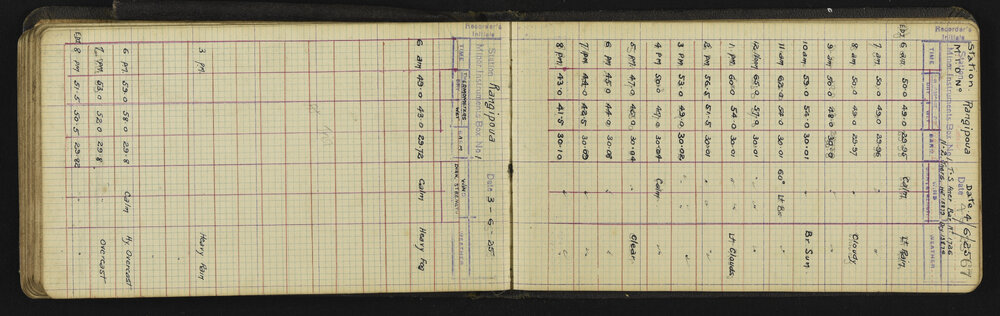 Recorder's
Initials
Station Rangipoua Date 3-6-25
Minor Instruments Box No 1
TIME THERMOMETERS BAR. WIND WEATHER
DRY WET DIRN. STRENGTH
6 am 43.0 43.0 29.72 Calm Heavy Fog
3 pm. Heavy Rain
6 pm. 59.0 58.0 29.8 Calm Hy Overcast
7 pm. 53.0 52.0 29.8 Overcast
8 pm 51.5 50.5 29.82 "
Recorder's
Initials
Station. Rangipoua Date 4/6/25 67
Station Date
M.I.D No
Minor Instruments Box No 1
TIME BAR. WIND WEATHER
6 am. 50.0 49.0 29.95 Calm Lt Rain.
7 am. 50.0 49.0 29.96 " "
8 am 50.0 49.0 29.97 " Cloudy
9 am 50.0 48.0 30.0 " "
10 am. 59.0 54.0 30.01 " Br Sun
11 am 62.0 54.0 30.01 60° Lt Br.
12 Noon 63.0 57.0 30.01 " "
1. pm 60.0 54.0 30.01 " " Lt Clouds.
2 pm. 56.5 51.5 30.01 " "
3 pm 53.0 49.0 30.02 "
4 pm 50.0 47.0 30.04 Calm "
5 pm. 47.0 46.0 30.04 " Clear
6 pm 45.0 44.0 30.08 " "
7 pm 44.0 42.5 30.09 " "
8 pm. 43.0 41.5 30.10 " "